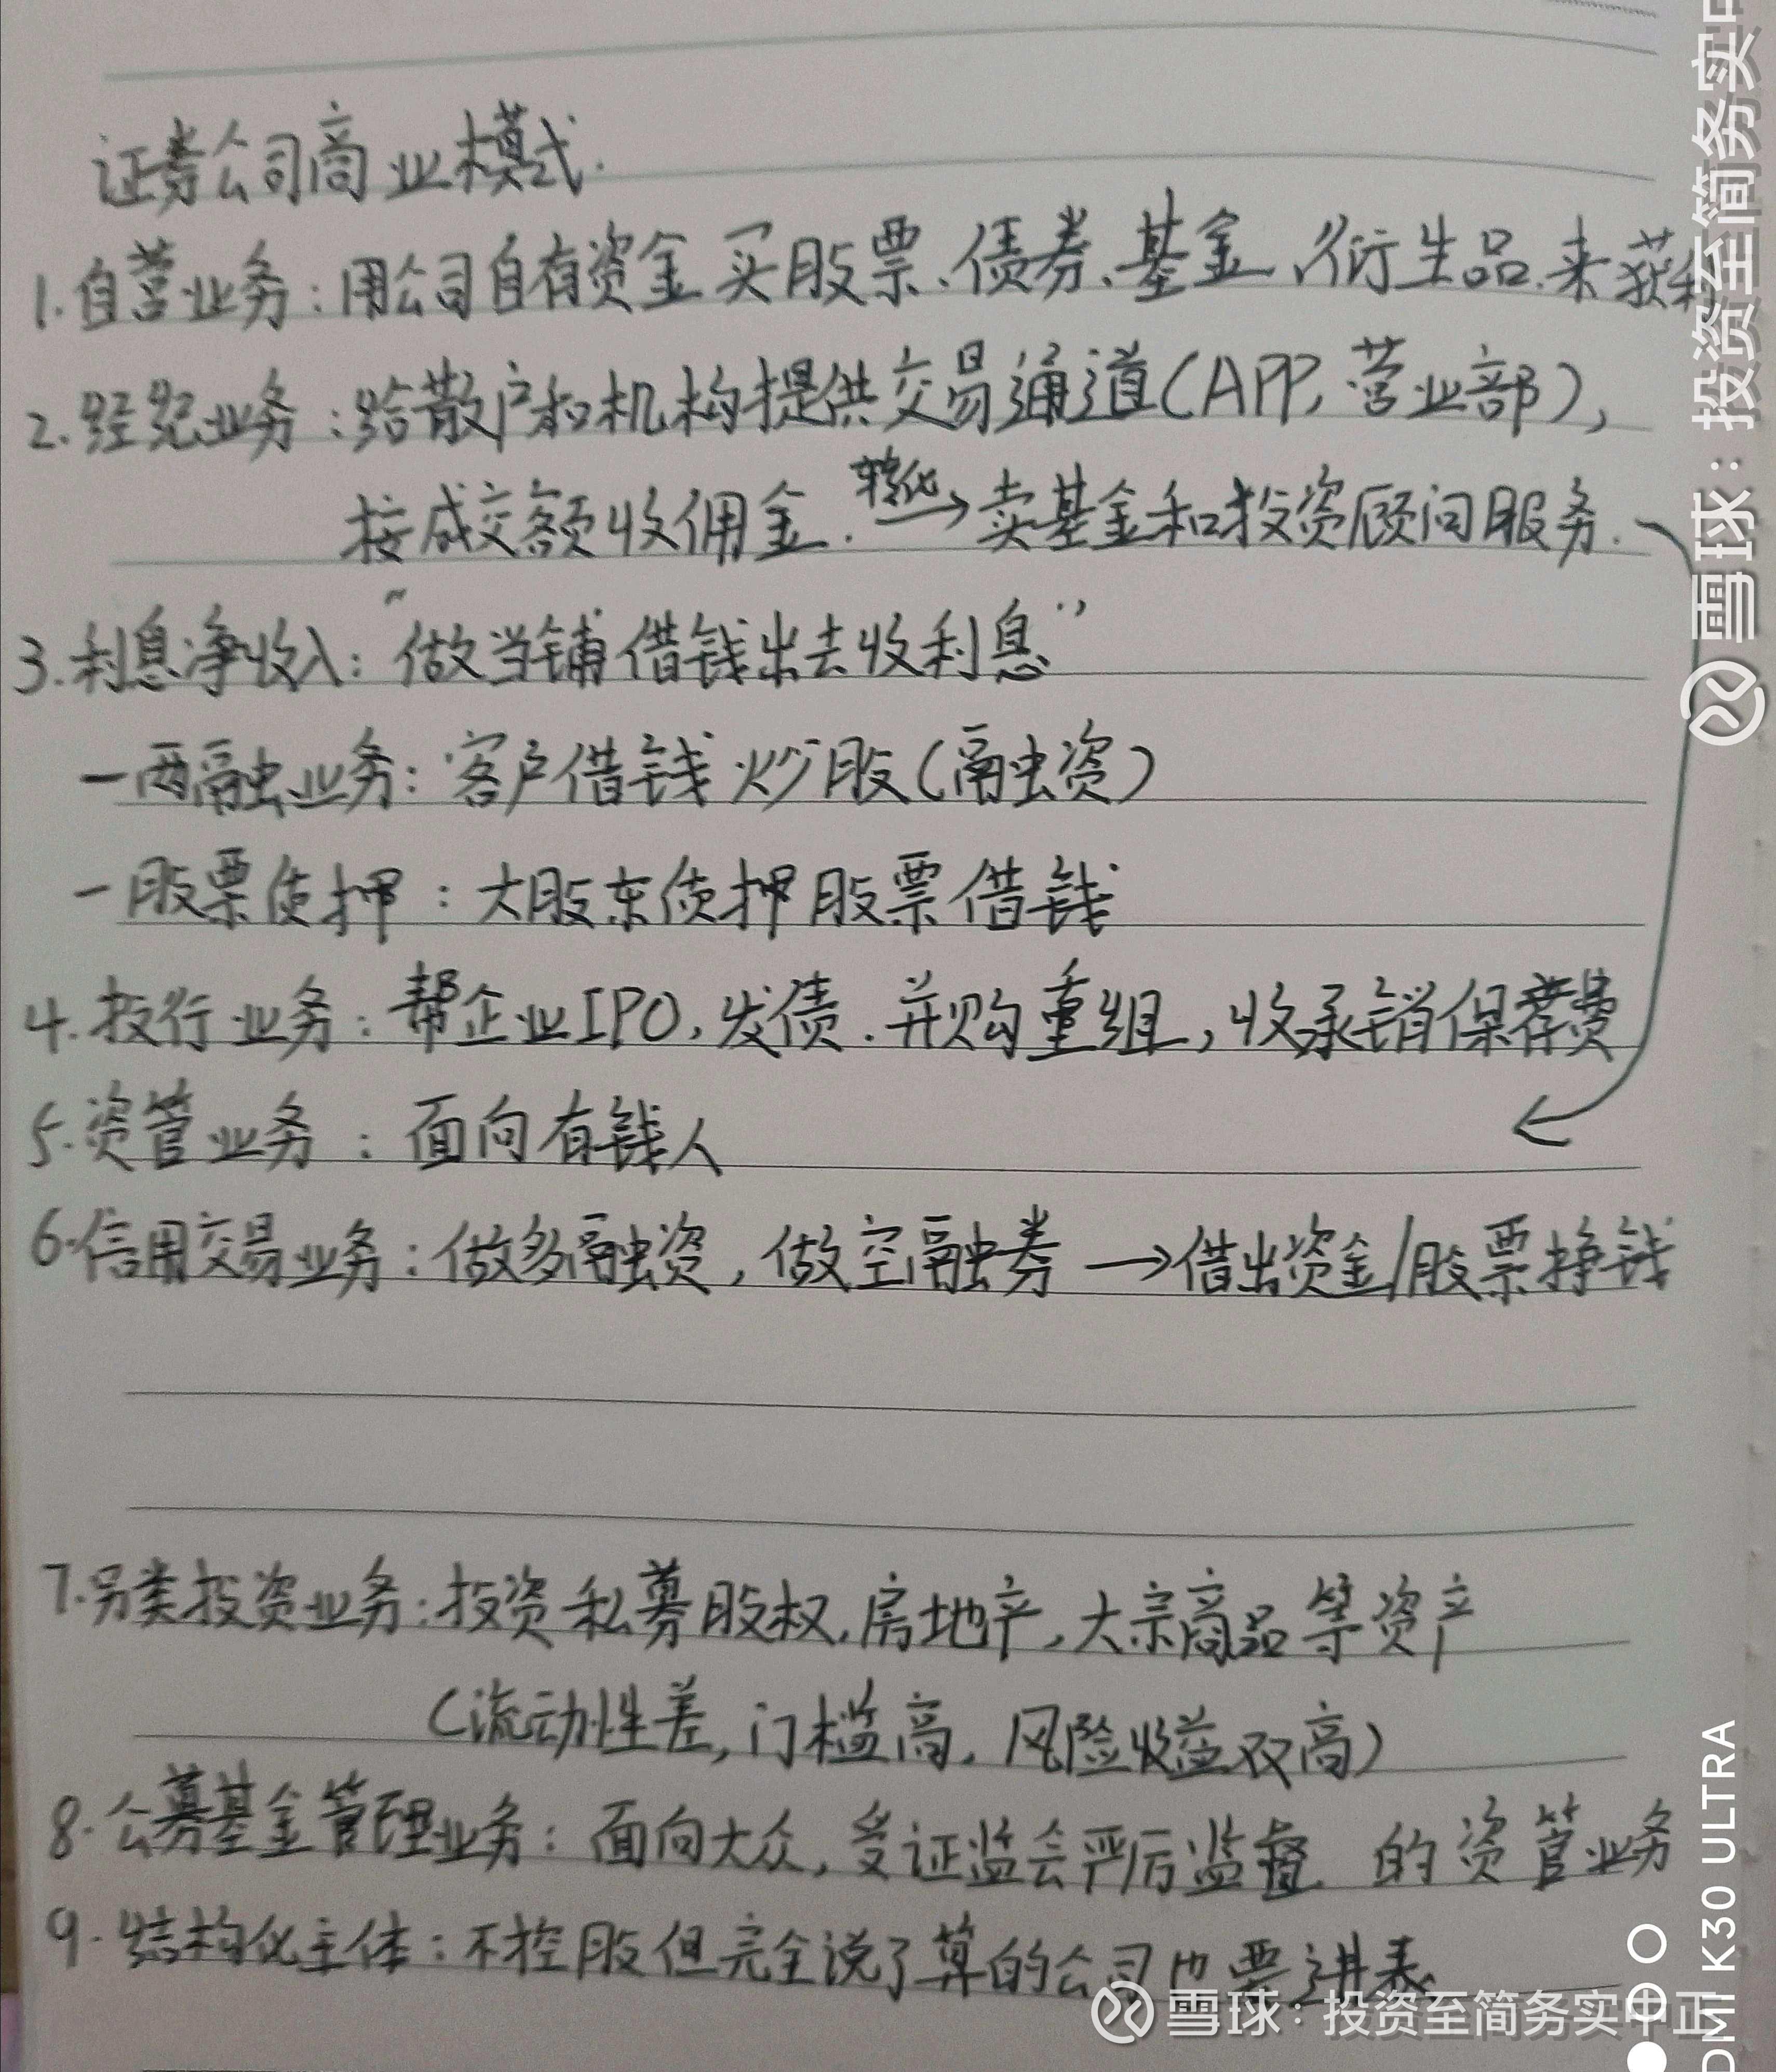 证券公司商业模式.
1.自营业务：用公司自有资金买股票、债券、基金、衍生品.来获利
2.经纪业务：给散户和机构提供交易通道(APP,营业部),
按成交额收佣金. 转化→卖基金和投资顾问服务.
3.利息净收入："做当铺借钱出去收利息"
-两融业务：客户借钱炒股(融资)
-股票质押：大股东质押股票借钱
4.投行业务：帮企业IPO,发债.并购重组,收承销保荐费
5.资管业务：面向有钱人
6.信用交易业务：做多融资,做空融券→借出资金/股票挣钱
7.另类投资业务：投资私募股权,房地产,大宗商品等资产
(流动性差,门槛高,风险收益双高)
8.公募基金管理业务：面向大众,受证监会严厉监督 的资管业务
9.结构化主体：不控股但完全说了算的公司也要进表
雪球：投资至简务实中正
雪球：投资至简务实中
DMI K30 ULTRA